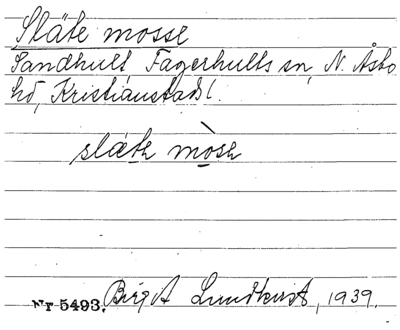 Släte mosse
Sandhult Fagerhults sn, N. Åsbo
hd, Kristianstads l.
släte mòse
Nr 5493. Birgit Lundkvist, 1939.